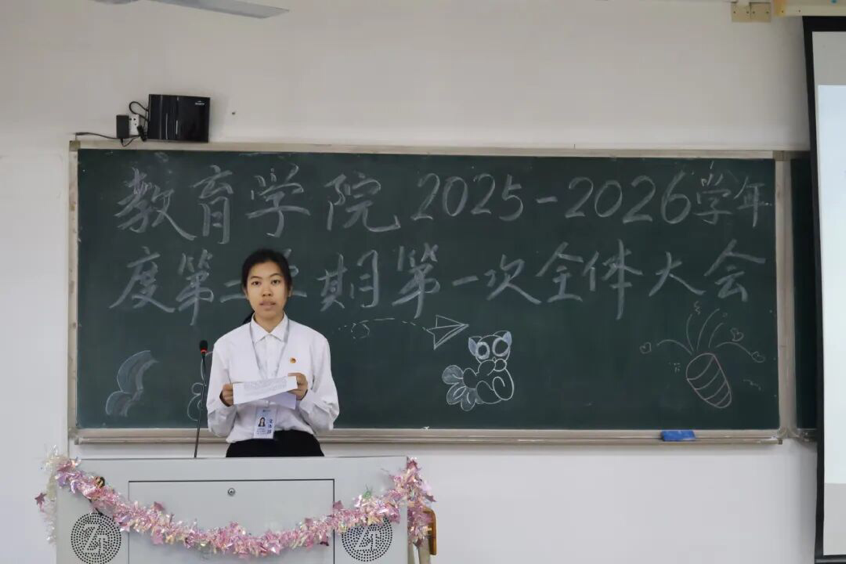 教育学院2025-2026学年
度第二学期第一次全体大会
ZT
ZT